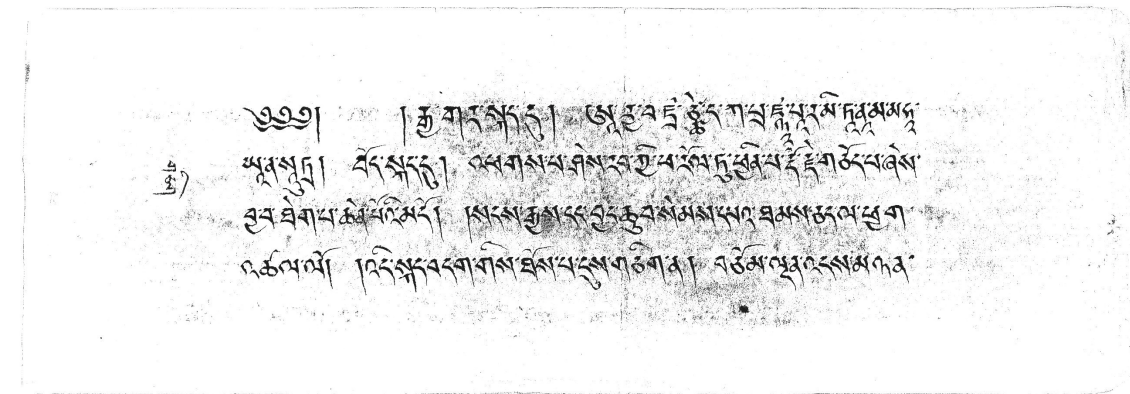 ༄༅༅། །རྒྱ་གར་སྐད་དུ། ཨཱརྱ་བ་ཛྲཾ་ཙྪེ་ད་ཀ་པྲ་ཛྙཱ་པཱ་ར་མི་ཏཱ་ནཱ་མ་མ་ཧཱ་
ཡཱ་ན་སཱུ་ཏྲ། བོད་སྐད་དུ། འཕགས་པ་ཤེས་རབ་ཀྱི་ཕ་རོལ་ཏུ་ཕྱིན་པ་རྡོ་རྗེ་གཅོད་པ་ཞེས་
བྱ་བ་ཐེག་པ་ཆེན་པོའི་མདོ། །སངས་རྒྱས་དང་བྱང་ཆུབ་སེམས་དཔའ་ཐམས་ཅད་ལ་ཕྱག་
འཚལ་ལོ། །འདི་སྐད་བདག་གིས་ཐོས་པ་དུས་གཅིག་ན། བཅོམ་ལྡན་འདས་མཉན་